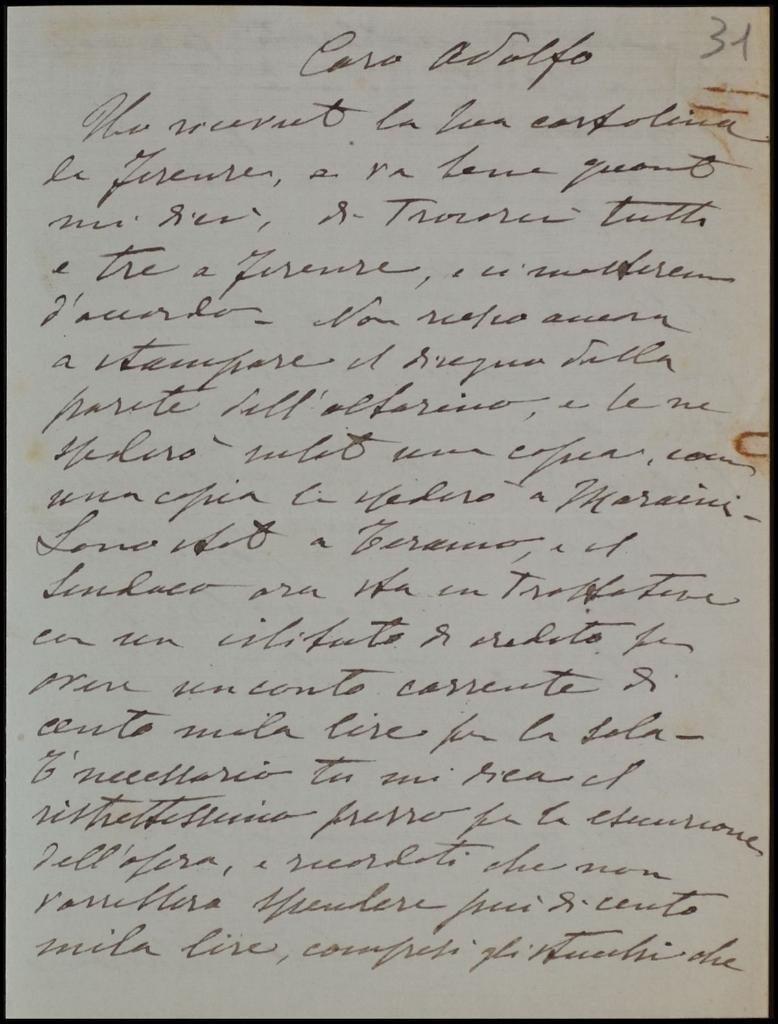 31
Caro Adolfo
Ho ricevut la tua cartolina
da Firenze, e va bene quant
mi dici, di trovarci tutti
e tre a Firenze, e ci metterem
d'accordo - Non riesco ancora
a stampare il disegno della
parete dell'altarino, e te ne
spedirò subit una copia, com
una copia la spedirò a Maraini -
Sono stat a Teramo, e il
Sindaco ora sta in trattative
con un istituto di credito per
avere un conto corrente di
cento mila lire per la sala -
È necessario tu mi dica il
ristrettissimo prezzo per la esecuzione
dell'opera, e ricordati che non
vorrebbero spendere più di cento
mila lire, compresi gli stucchi che